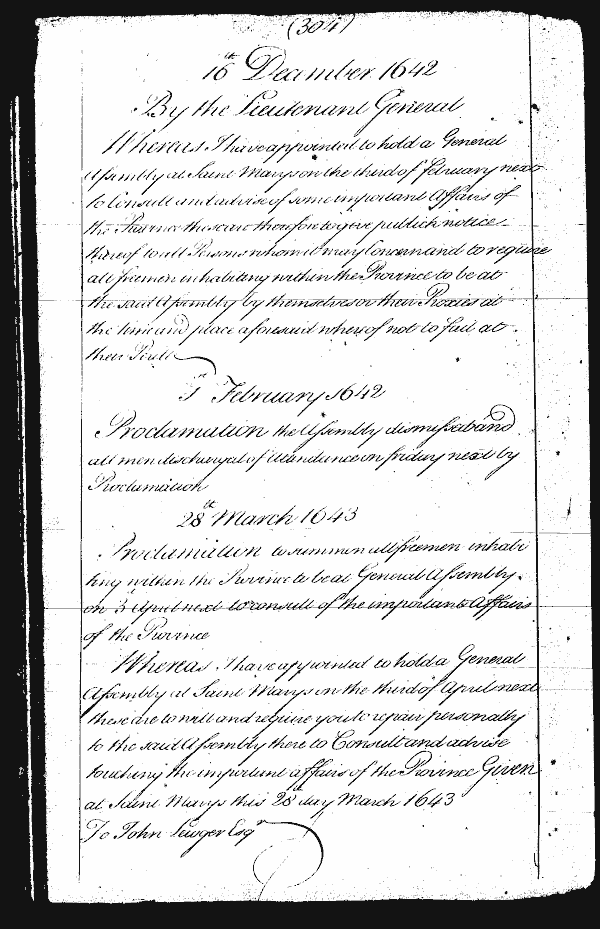 (304)
16th December 1642
By the Lieutenant General
Whereas I have appointed to hold a General
Assembly at Saint Marys on the third of february next
to Consult and advise of some important Affairs of
the Province these are therefore to give publick notice
thereof to all Persons whom it may Concern and to require
all freemen inhabiting within the Province to be at
the said Assembly by themselves or their Proxies at
the time and place aforesaid whereof not to fail at
their Perill
1st February 1642
Proclamation the Assembly dismissed and
all men discharged of Attendance on friday next by
Proclamation
28th March 1643
Proclamation to summon all freemen inhabi
ting within the Province to be at General Assembly
on 3d April next to consult of the important Affairs
of the Province
Whereas I have appointed to hold a General
Assembly at Saint Marys on the third of April next
these are to will and require you to repair personally
to the said Assembly there to Consult and advise
touching the important affairs of the Province Given
at Saint Marys this 28th day March 1643
To John Lewger Esqr